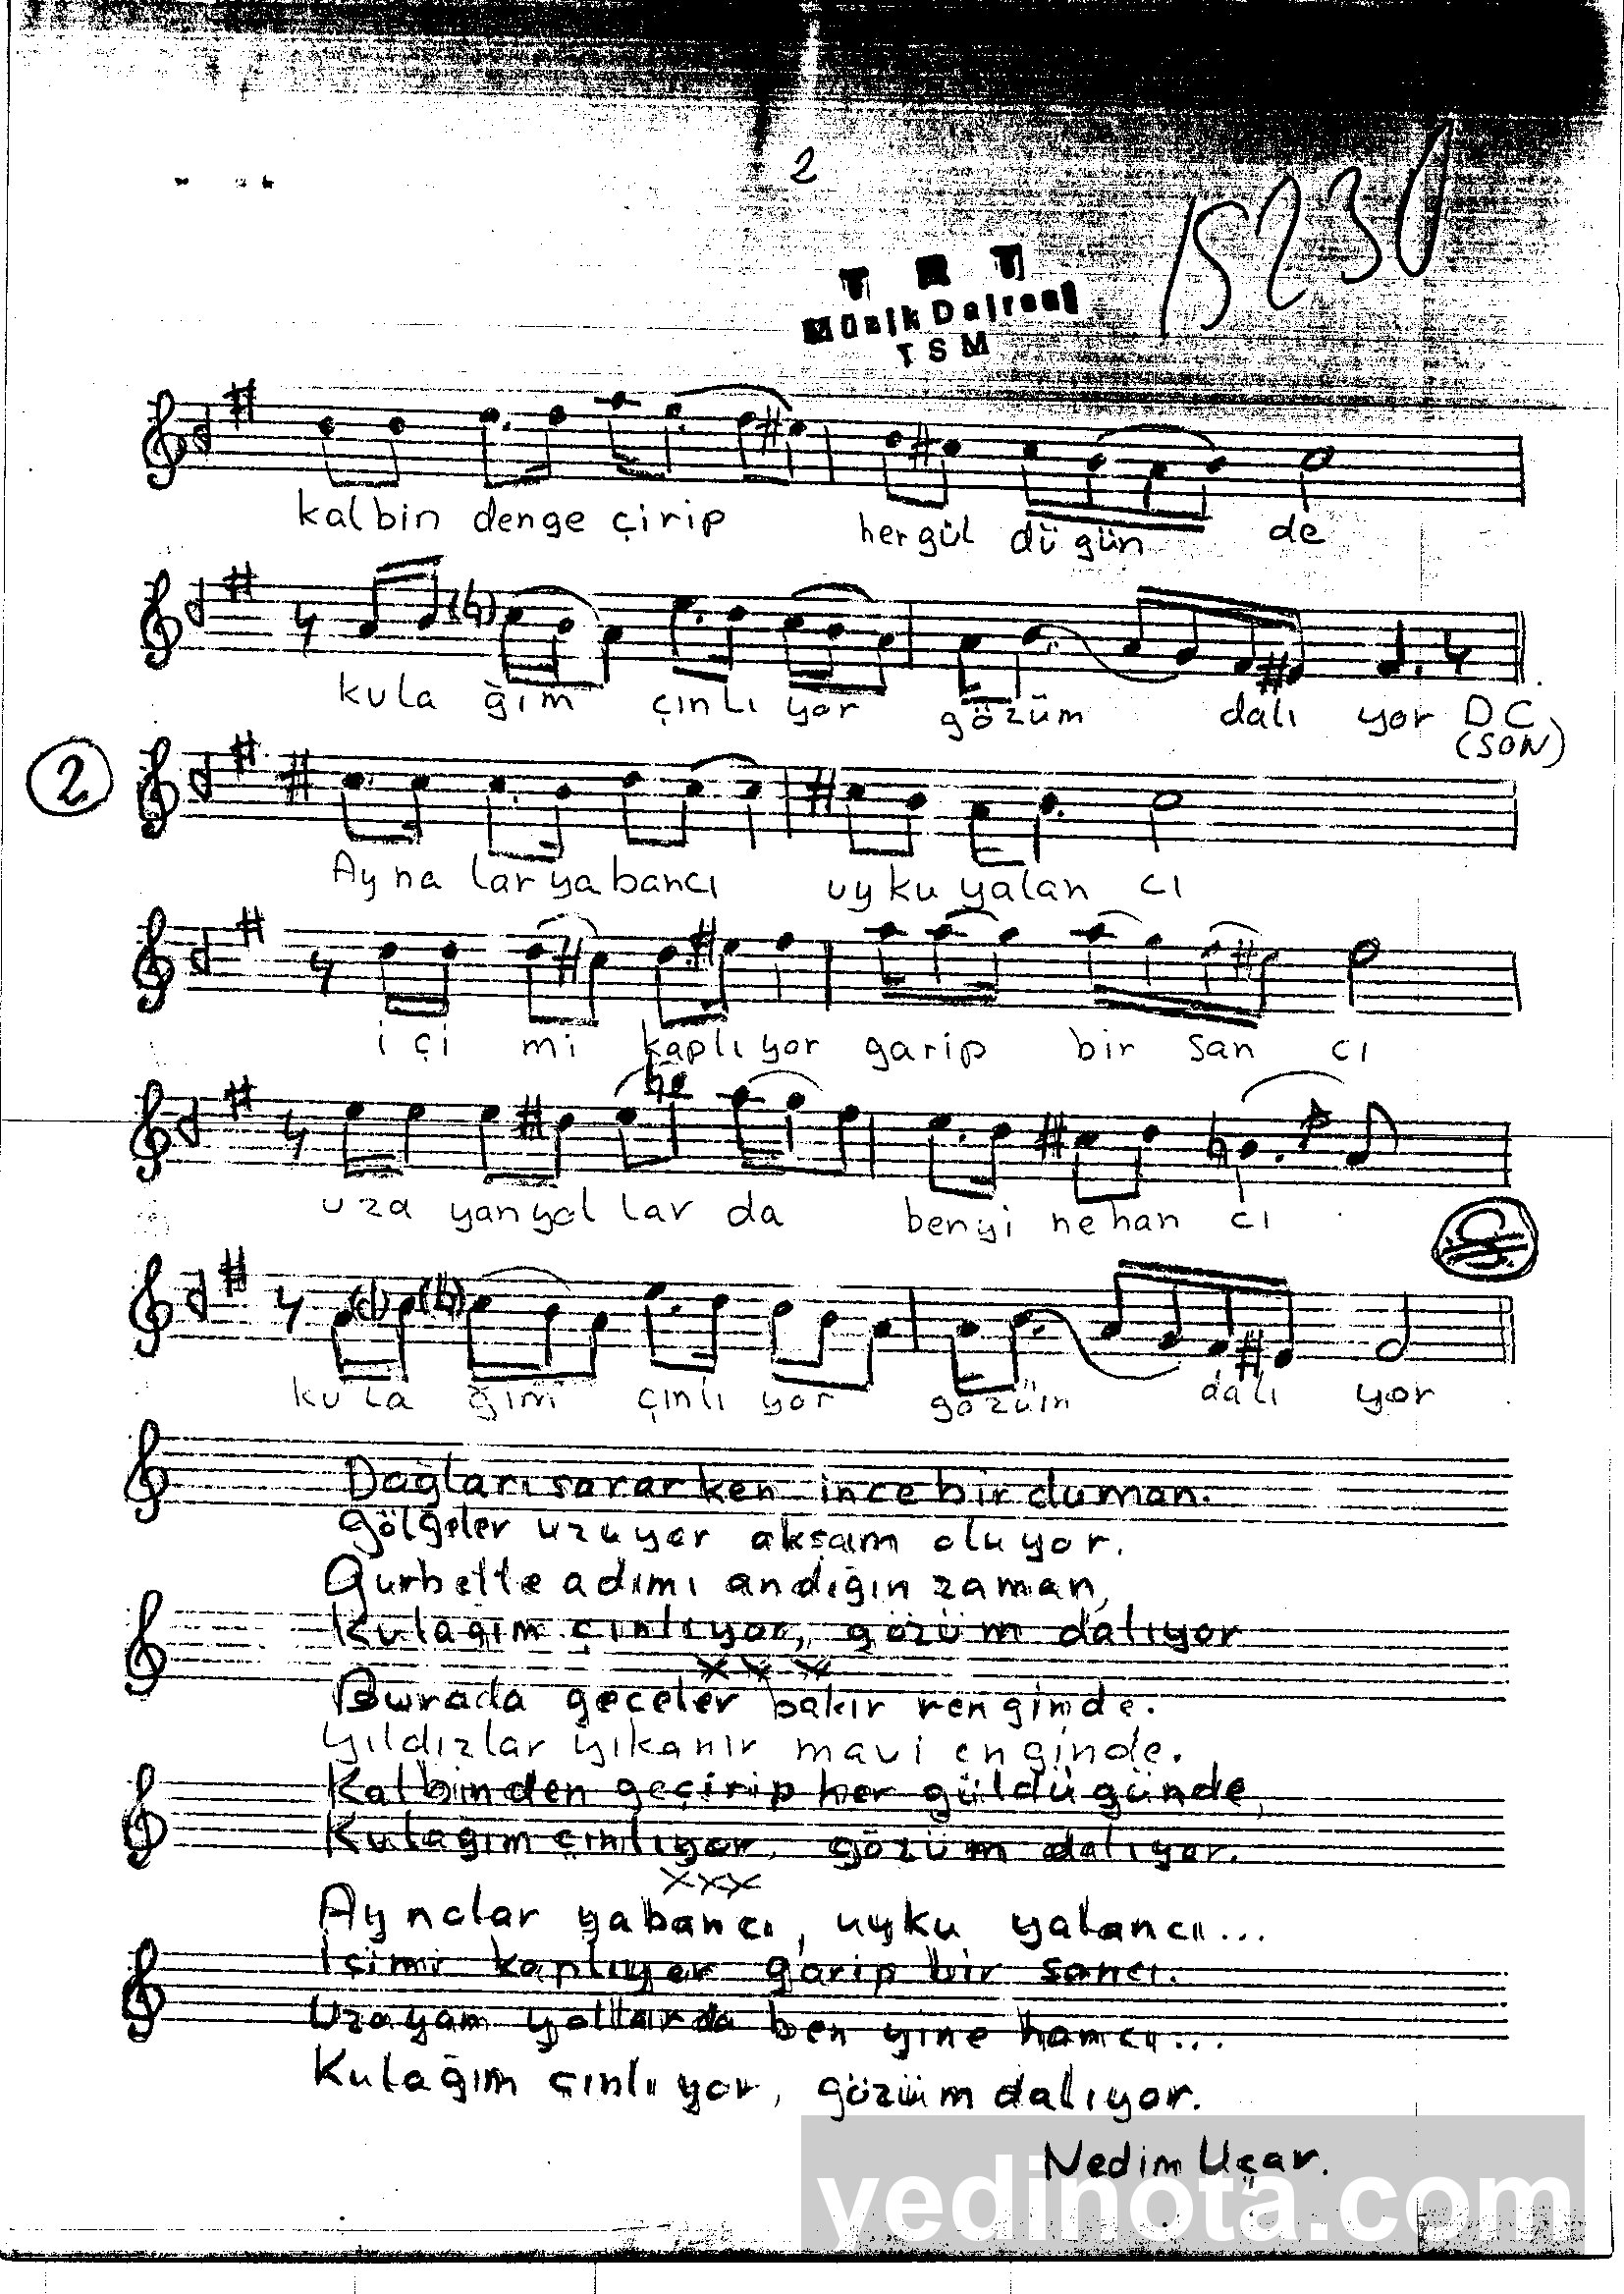 2
15230
TRT
Müzik Dairesi
TSM
kalbin denge çirip hergül dügün de
kula ğım çınlı yor gözüm dalı yor DC
(SON)
2
Ayna laryabancı uyku yalan cı
içi mi kaplıyor garip bir san cı
uza yanyol lar da benyi nehan cı
kula ğım çınlı yor gözüm dalı yor
Dağları sararken ince bir duman.
Gölgeler uzuyor akşam oluyor.
Gurbette adımı andığın zaman,
Kulağım çınlıyor, gözüm dalıyor
xxx
Burada geceler bakır renginde.
Yıldızlar yıkanır mavi enginde.
Kalbinden geçirip her güldüğünde,
Kulağım çınlıyor, gözüm dalıyor.
xxx
Aynalar yabancı, uyku yalancı...
İçimi kaplıyor garip bir sancı.
Uzayan yollarda ben yine hancı...
Kulağım çınlıyor, gözüm dalıyor.
Nedim Uçar.
yedinota.com